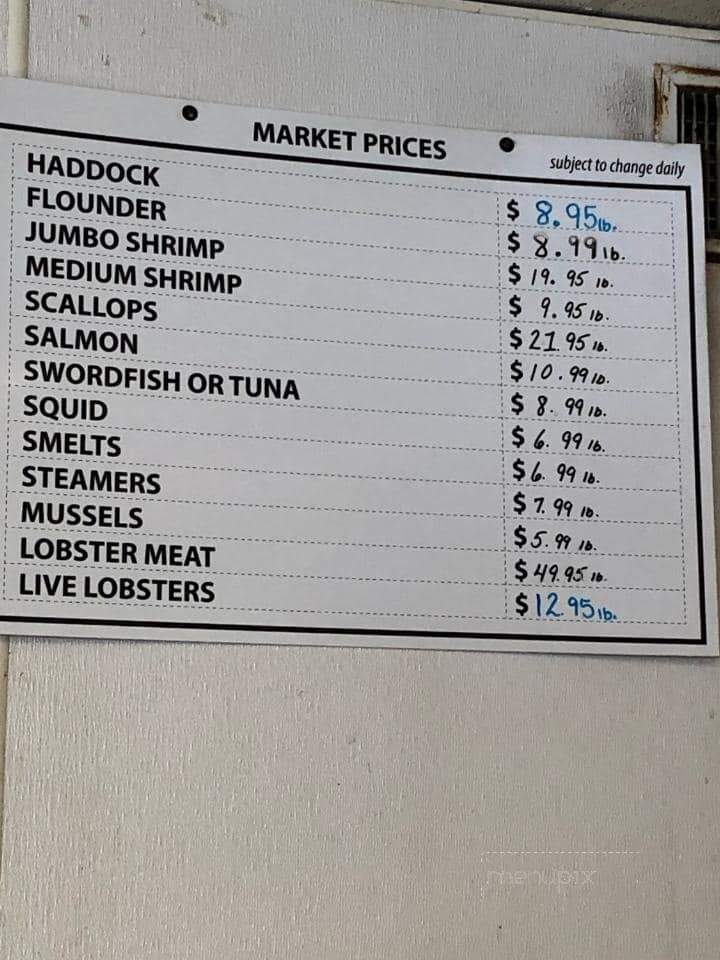 MARKET PRICES
subject to change daily
HADDOCK $ 8.95 lb.
FLOUNDER $ 8.99 lb.
JUMBO SHRIMP $ 19.95 lb.
MEDIUM SHRIMP $ 9.95 lb.
SCALLOPS $ 21.95 lb.
SALMON $ 10.99 lb.
SWORDFISH OR TUNA $ 8.99 lb.
SQUID $ 6.99 lb.
SMELTS $ 6.99 lb.
STEAMERS $ 7.99 lb.
MUSSELS $ 5.99 lb.
LOBSTER MEAT $ 49.95 lb.
LIVE LOBSTERS $ 12.95 lb.
menupix